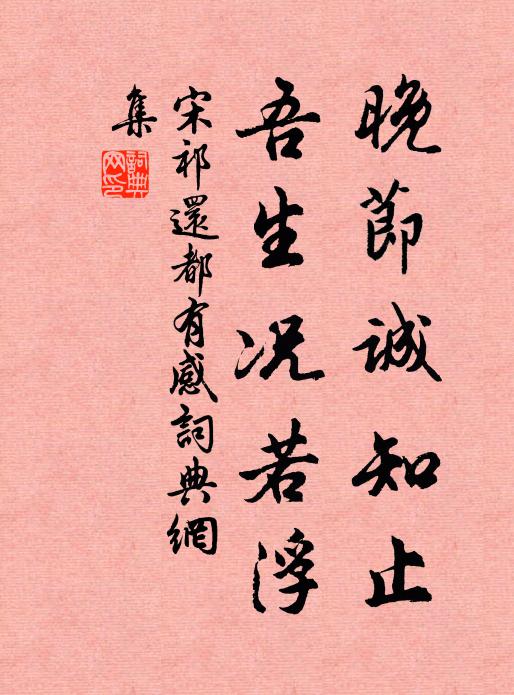 晚節誠知止
吾生况若浮
宋祁還都有感詞典網
集
詞典
网印